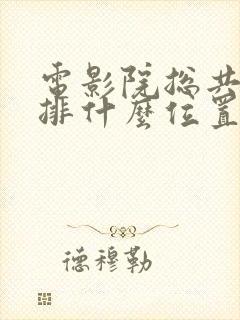 電影院總共
排什麼位置
德穆勒